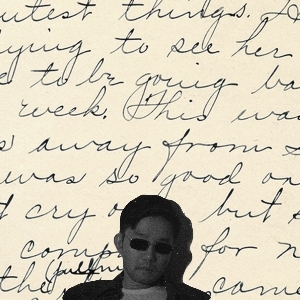 cutest things.
lying to see her
to be going ba
week. This was
away from s
was so good on
t cry o but s
comp for n
the came